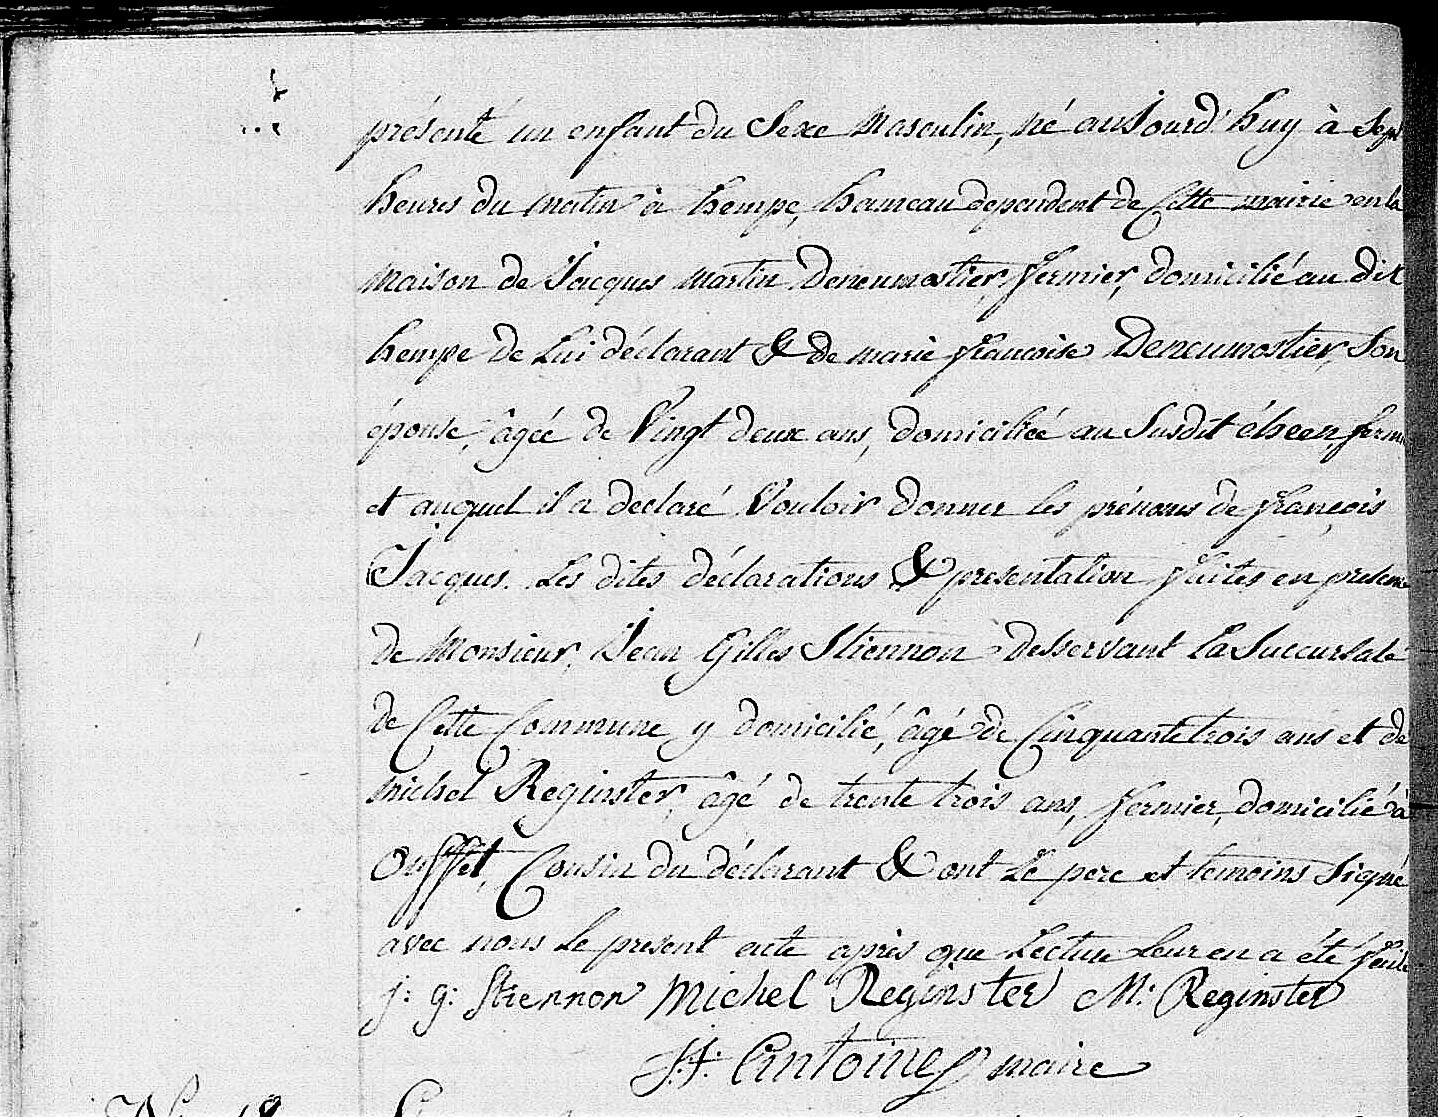 présenté un enfant du Sexe Masculin, né auJourd'huy à Sept
heures du matin à hempe, hameau dependent de Cette mairie en la
maison de Jacques martin Deneumostier, fermier, domicilié au dit
hempe de Lui déclarant & de marie francoise Deneumostier, Son
épouse, âgée de Vingt deux ans, domiciliée au Susdit
et auquel il a declaré Vouloir Donner les prénoms de françois
Jacques. Les dites déclarations & presentation faites en presence
de Monsieur, Jean Gilles Stiennon desservant la Succursale
de Cette Commune y domicilié, âgé de Cinquante trois ans et de
michel Reginster, âgé de trente trois ans, fermier, domicilié à
Ouffet, Cousin du déclarant & ont le pere et temoins Signé
avec nous le present acte après que Lecture leur en a été faite
j: g: Stiennon Michel Reginster M: Reginster
Antoine maire